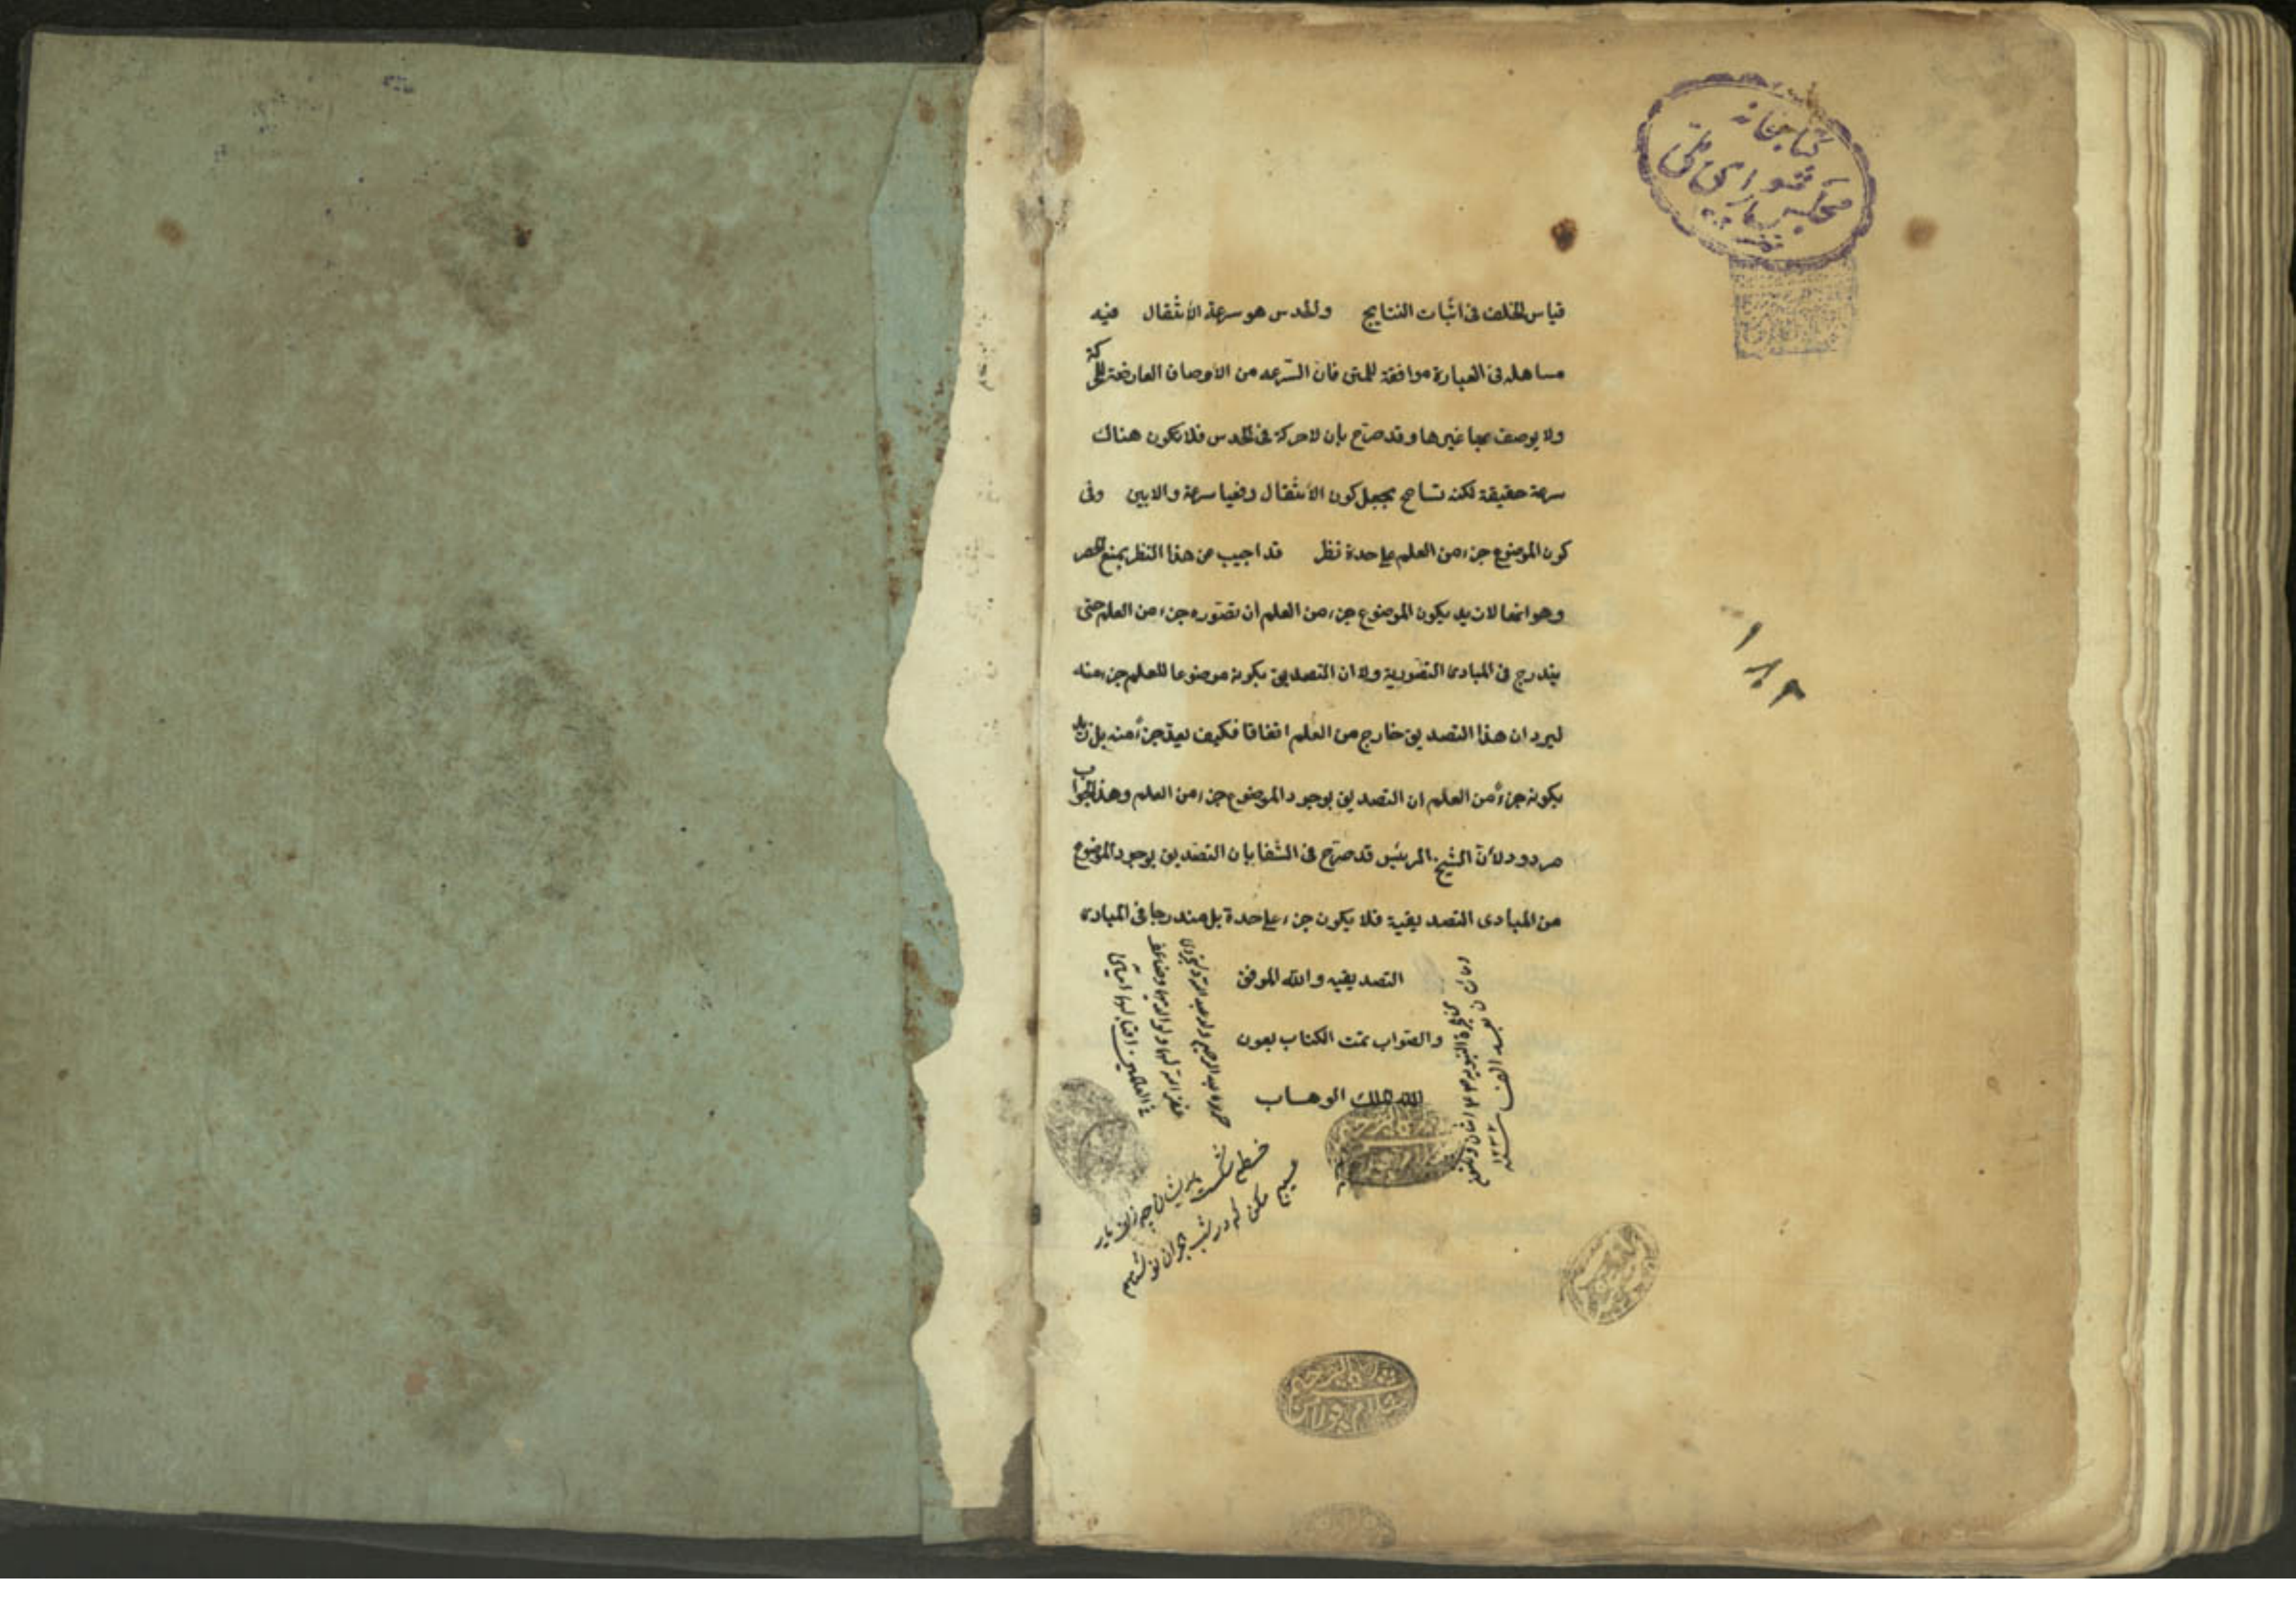 كتابخانه
مجلس شورای ملی
قياس الخلف فی اثبات النتايج والحدس هو سرعة الأنتقال فيه
مساهله فی العبارة موافقة للمتن فان السّرعه من الأوصاف العارضة للحركة
ولا يوصف بها غيرها وقد صرّح بان لا حركة فی الحدس فلا تكون هناك
سرعة حقيقة لكنه تسامح بجعل كون الأنتقال دفعيا سرعة والا بين وفی
كون الموضوع جزء من العلم علی حدة نظر قد اجيب عن هذا النظر بمنع الحصر
وهو انما لا نريد بكون الموضوع جزء من العلم ان تصّوره جزء من العلم حتی
يندرج فی المبادی التصّورية ولا ان التصديق بكونه موضوعا للعلم جزء منه
ليرد ان هذا التصديق خارج من العلم اتفاقا فكيف يعدّ جزءً منه بل نريد
بكونه جزءً من العلم ان التصديق بوجود الموضوع جزء من العلم وهذا الجواب
مردود لأنّ الشيخ الرئيس قد صرّح فی الشفا بان التصديق بوجود الموضوع
من المبادی التصديقية فلا يكون جزء علی حدة بل مندرجا فی المبادی
التصديقيه والله الموفق
والصّواب تمت الكتاب بعون
الله الملك الوهاب
خطم شكست پريشان چه زلف يار
عيبم مكن كه در شب هجران نوشته‌ام
۱۸۲